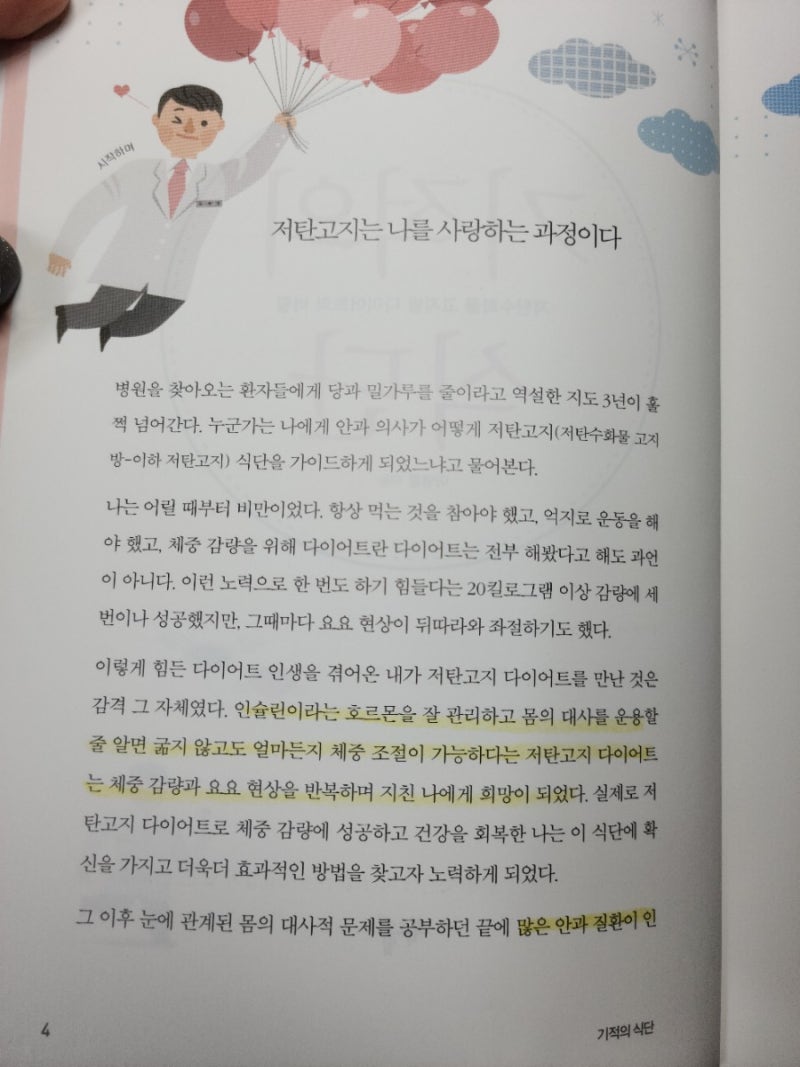 시작하며
저탄고지는 나를 사랑하는 과정이다
병원을 찾아오는 환자들에게 당과 밀가루를 줄이라고 역설한 지도 3년이 훌
쩍 넘어간다. 누군가는 나에게 안과 의사가 어떻게 저탄고지(저탄수화물 고지
방-이하 저탄고지) 식단을 가이드하게 되었느냐고 물어본다.
나는 어릴 때부터 비만이었다. 항상 먹는 것을 참아야 했고, 억지로 운동을 해
야 했고, 체중 감량을 위해 다이어트란 다이어트는 전부 해봤다고 해도 과언
이 아니다. 이런 노력으로 한 번도 하기 힘들다는 20킬로그램 이상 감량에 세
번이나 성공했지만, 그때마다 요요 현상이 뒤따라와 좌절하기도 했다.
이렇게 힘든 다이어트 인생을 겪어온 내가 저탄고지 다이어트를 만난 것은
감격 그 자체였다. 인슐린이라는 호르몬을 잘 관리하고 몸의 대사를 운용할
줄 알면 굶지 않고도 얼마든지 체중 조절이 가능하다는 저탄고지 다이어트
는 체중 감량과 요요 현상을 반복하며 지친 나에게 희망이 되었다. 실제로 저
탄고지 다이어트로 체중 감량에 성공하고 건강을 회복한 나는 이 식단에 확
신을 가지고 더욱더 효과적인 방법을 찾고자 노력하게 되었다.
그 이후 눈에 관계된 몸의 대사적 문제를 공부하던 끝에 많은 안과 질환이 인
4
기적의 식단